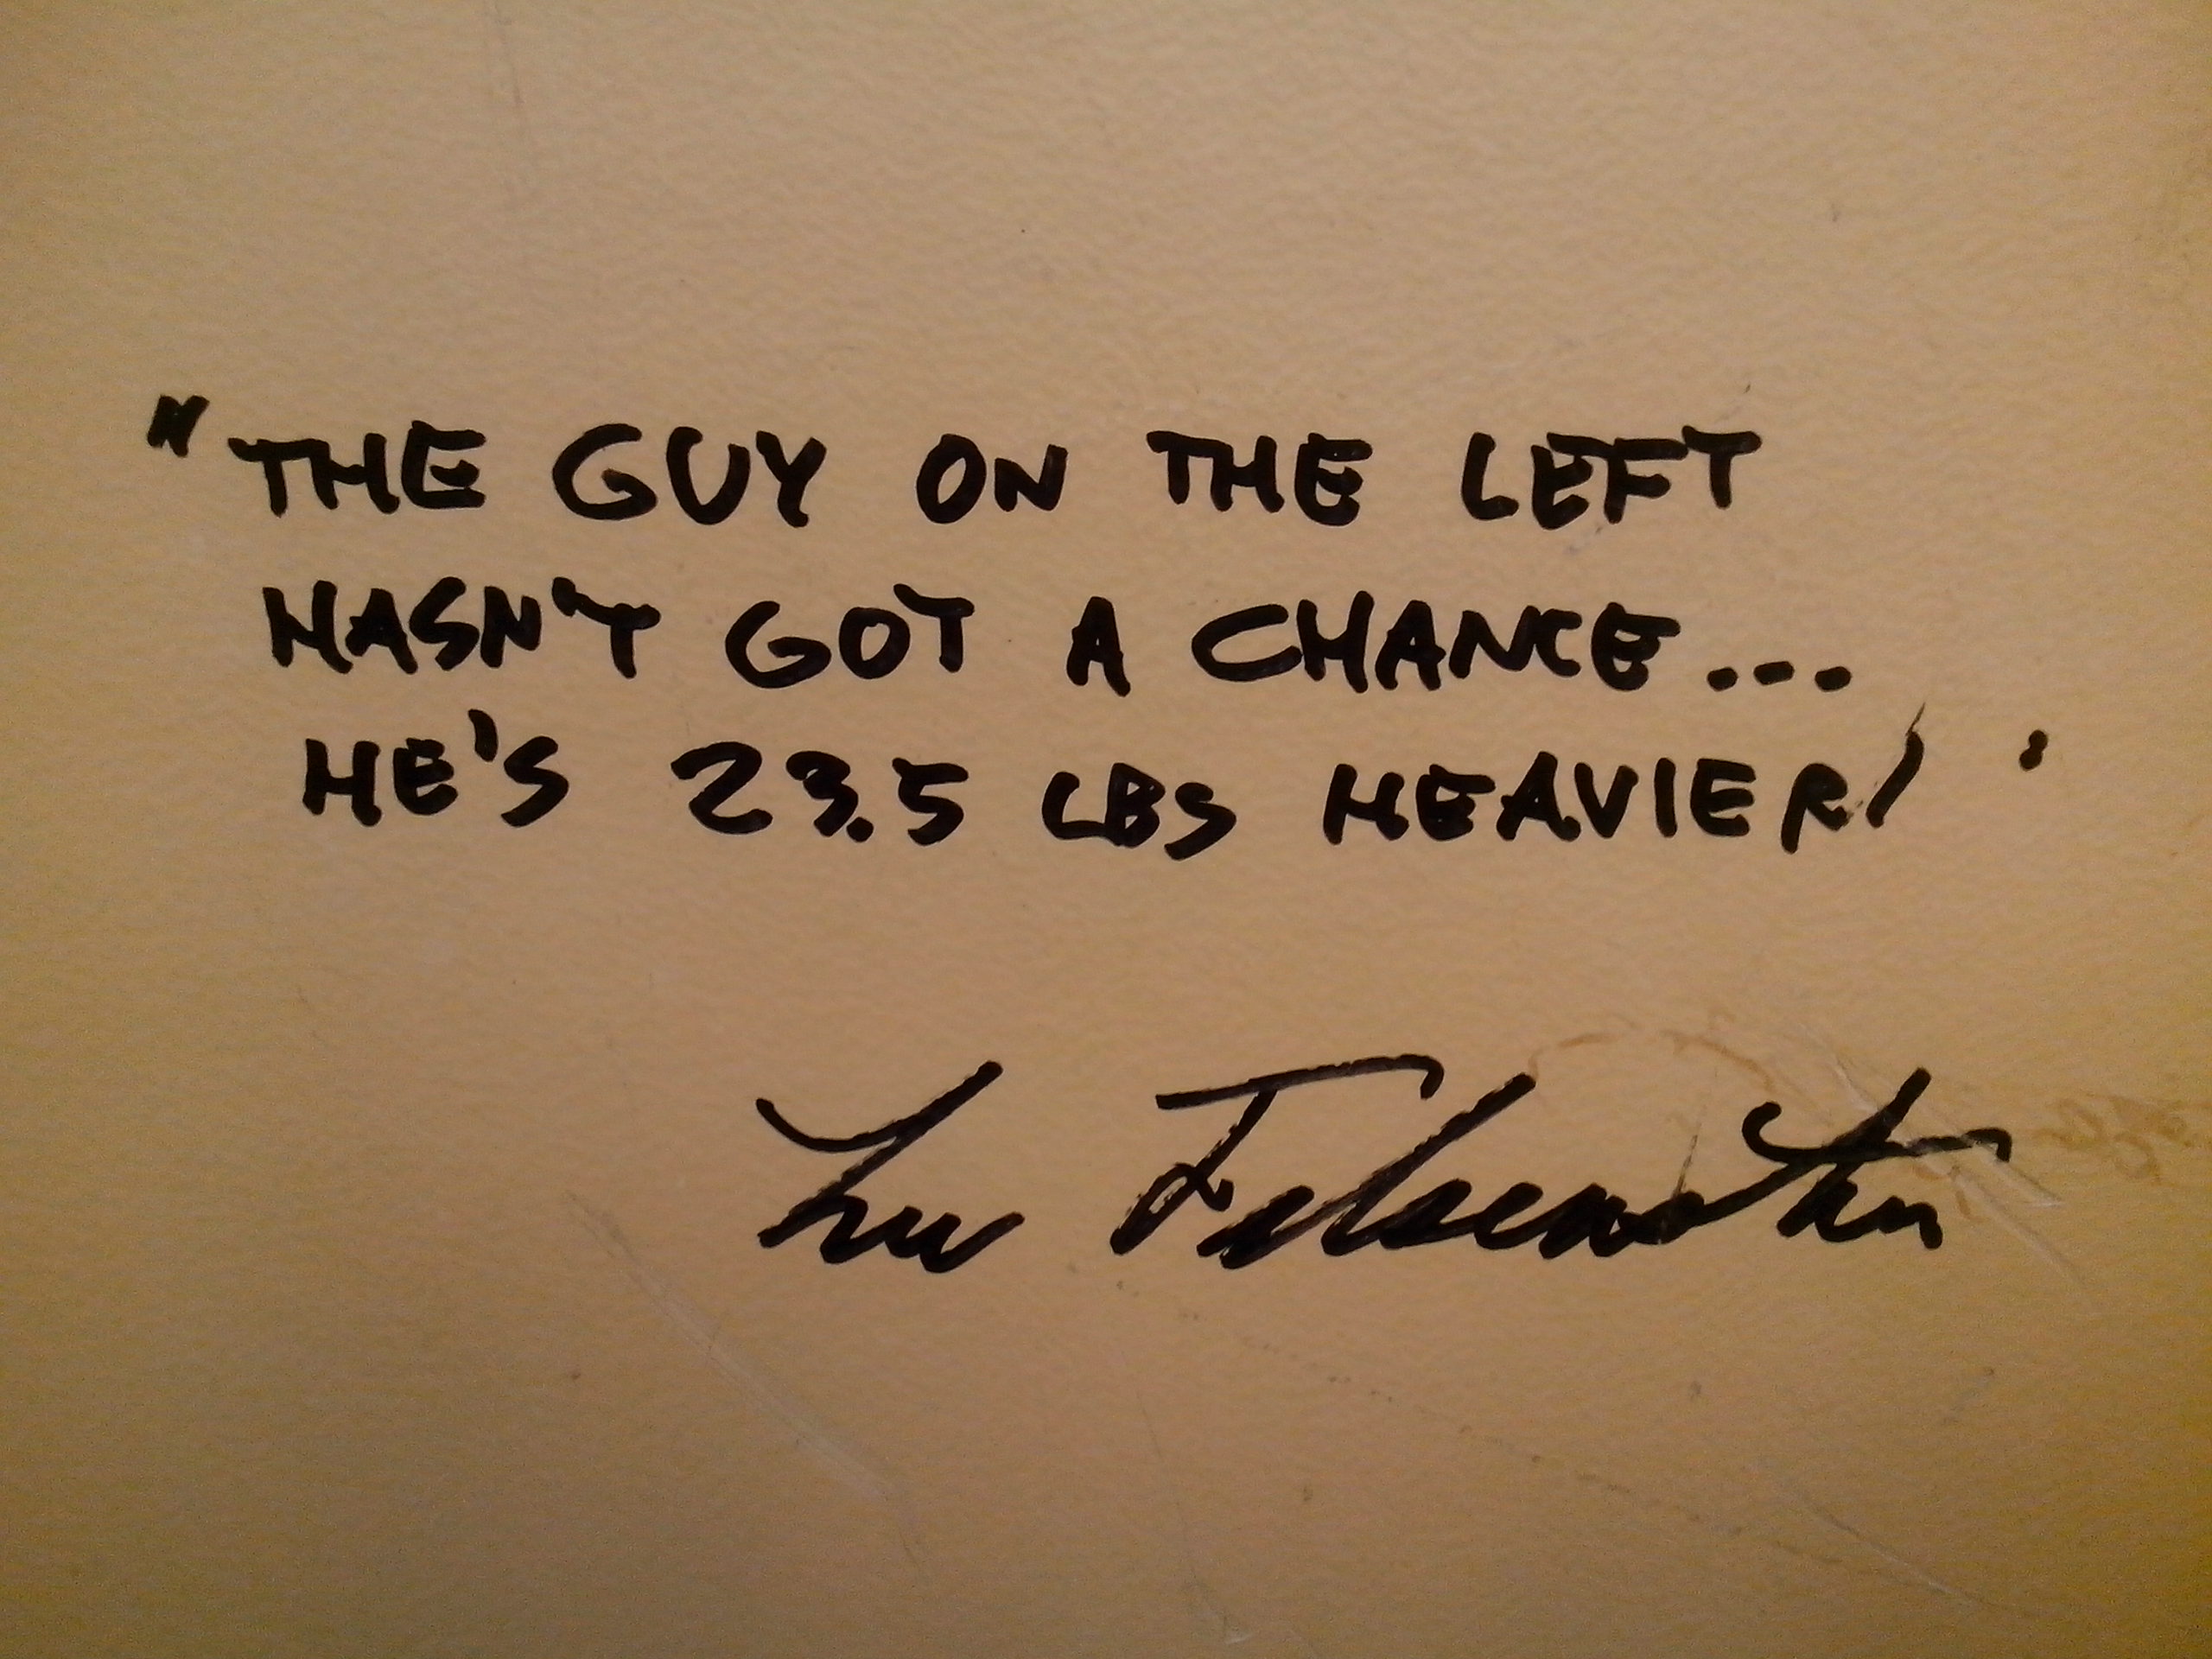 "THE GUY ON THE LEFT
HASN'T GOT A CHANCE...
HE'S 23.5 LBS HEAVIER!"
Lee Felsenstein